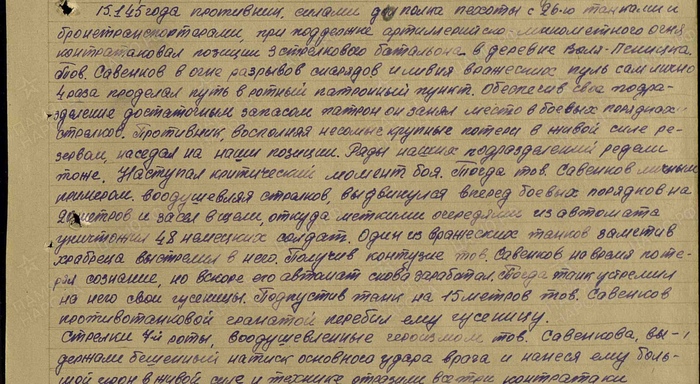 15.1.45 года противник, силами до полка пехоты с 26-ю танками и
бронетранспортерами, при поддержке артиллерийско-минометного огня
контратаковал позиции 3 стрелкового батальона в деревне Воля-Пеницка.
Тов. Савенков в огне разрывов снарядов и ливня вражеских пуль сам лично
4 раза проделал путь в ротный патронный пункт. Обеспечив свое подра-
зделение достаточным запасом патрон он занял место в боевых порядках
стрелков. Противник, восполняя несомые крупные потери в живой силе ре-
зервом, наседал на наши позиции. Ряды наших подразделений редели
тоже. Наступал критический момент боя. Тогда тов. Савенков личным
примером, воодушевляя стрелков, выдвинулся вперед боевых порядков на
метров и засел в щели, откуда меткими очередями из автомата
уничтожил 48 немецких солдат. Один из вражеских танков заметив
храбреца выстрелил в него. Получив контузию тов. Савенков на время поте-
рял сознание, но вскоре его автомат снова заработал. Тогда танк устремил
на него свои гусеницы. Подпустив танк на 15 метров тов. Савенков
противотанковой гранатой перебил ему гусеницу.
Стрелки 7й роты, воодушевленные героизмом тов. Савенкова, вы-
держали бешенный натиск основного удара врага и нанеся ему боль-
шой урон в живой силе и технике отразили все три контратаки